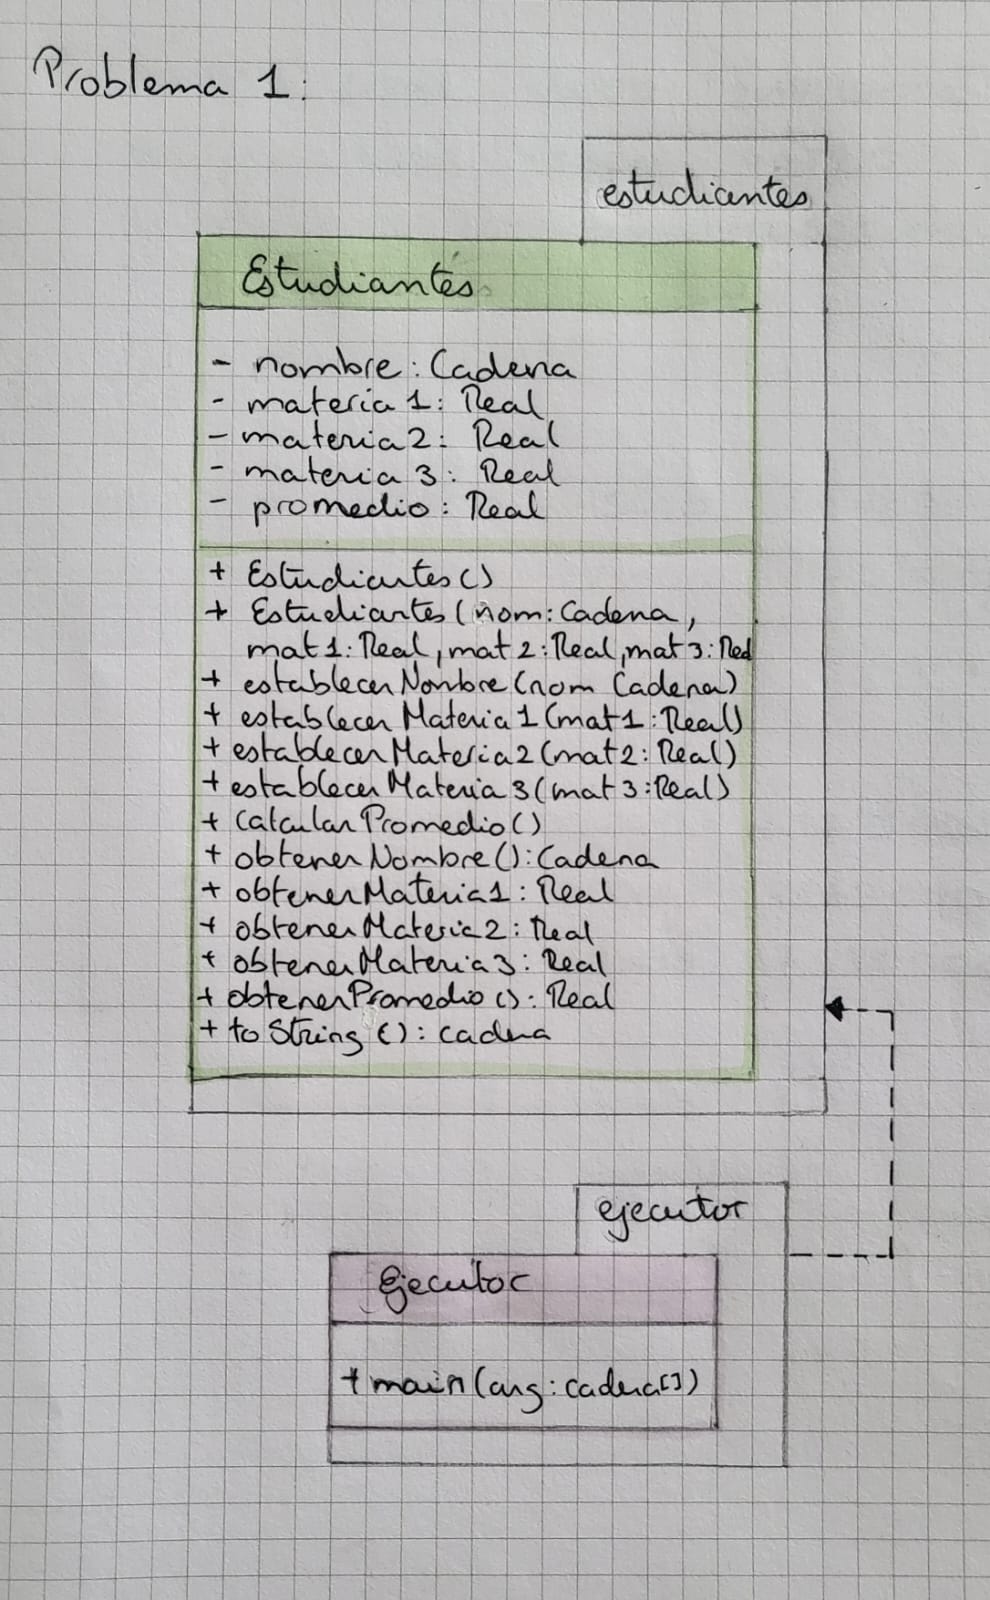 Problema 1:
estudiantes
Estudiantes
- nombre: Cadena
- materia 1: Real
- materia 2: Real
- materia 3: Real
- promedio: Real
+ Estudiantes()
+ Estudiantes (nom: Cadena,
mat 1: Real, mat 2: Real, mat 3: Real
+ establecerNombre (nom Cadena)
+ establecer Materia 1 (mat1: Real)
+ establecerMateria2 (mat2: Real)
+ establecerMateria 3 (mat 3: Real)
+ calcularPromedio()
+ obtenerNombre(): Cadena
+ obtenerMateria1: Real
+ obtenerMateria2: Real
+ obtenerMateria3: Real
+ obtenerPromedio(): Real
+ toString (): cadena
ejecutor
Ejecutor
+ main(arg: cadena[])